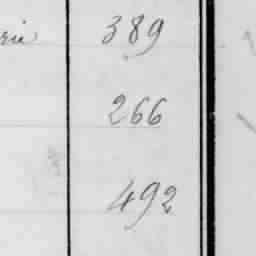 rie 389
266
492